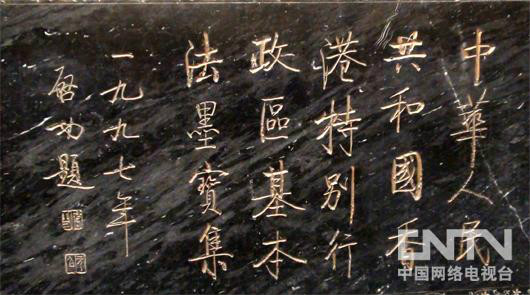 中華人民
共和國香
港特別行
政區基本
法墨寶集
一九九七年
啟功題
CNTV
中国网络电视台